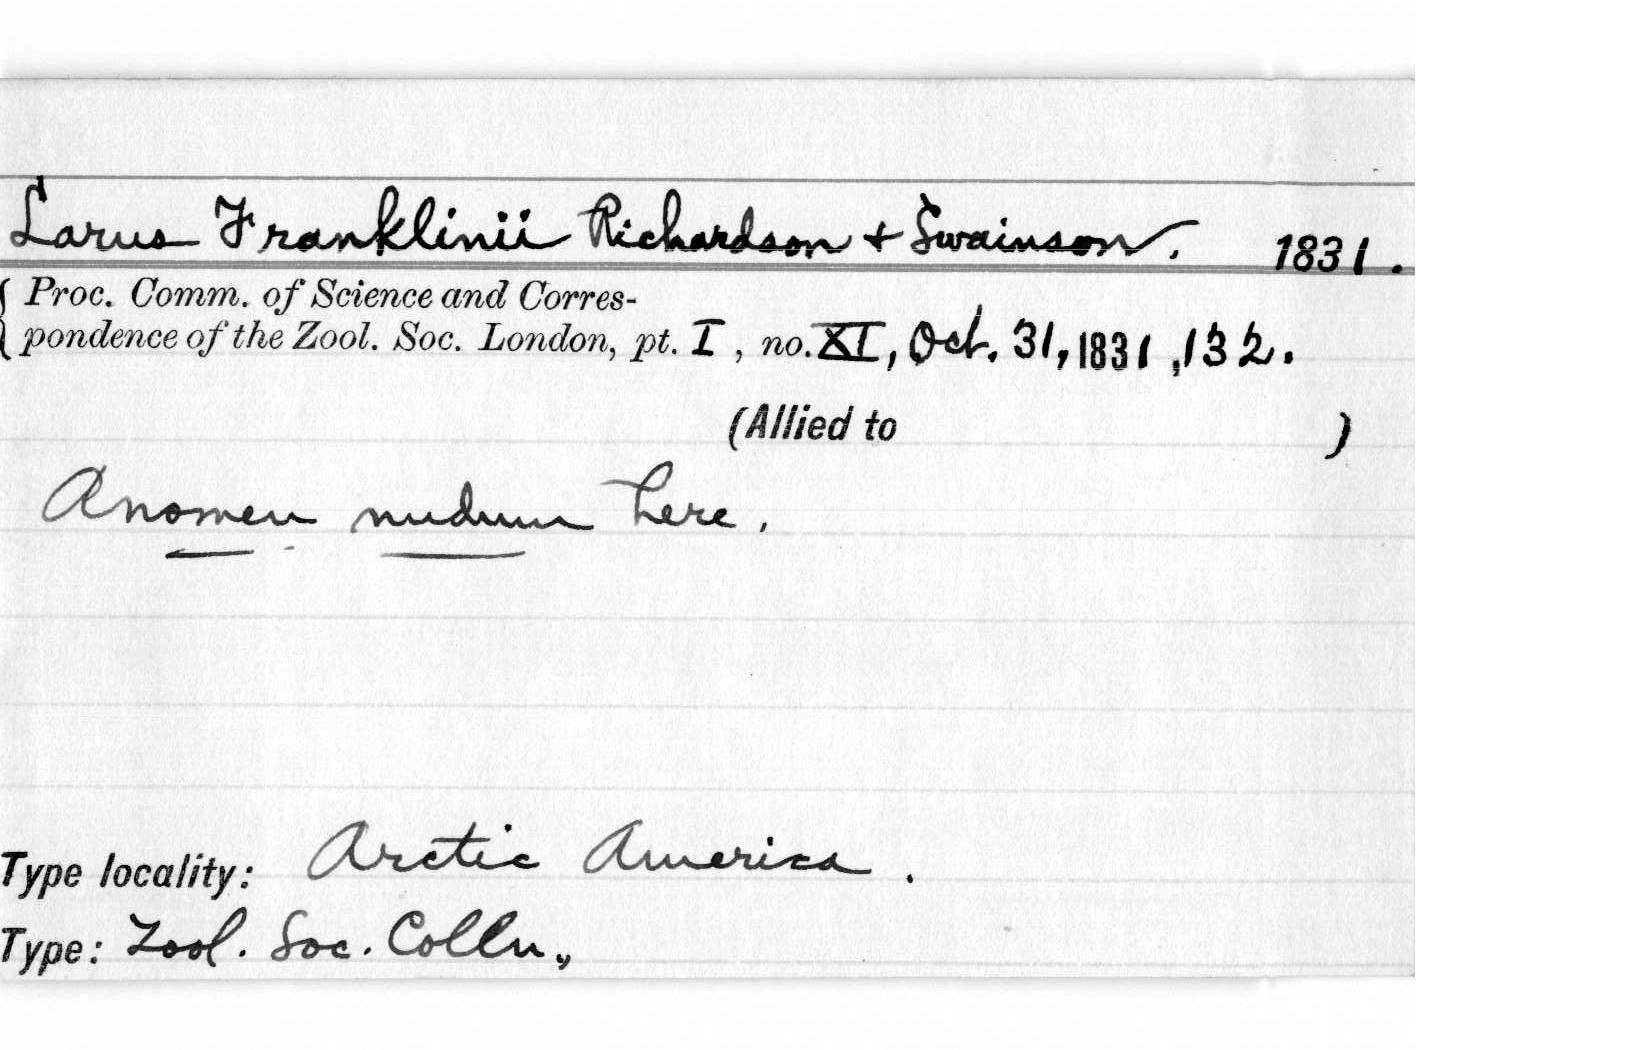 Larus Franklinii Richardson + Swainson. 1831.
{ Proc. Comm. of Science and Corres-
pondence of the Zool. Soc. London, pt. I, no. XI, Oct. 31, 1831, 132.
(Allied to )
A nomen nudum here.
Type locality: Arctic America.
Type: Zool. Soc. Colln.,